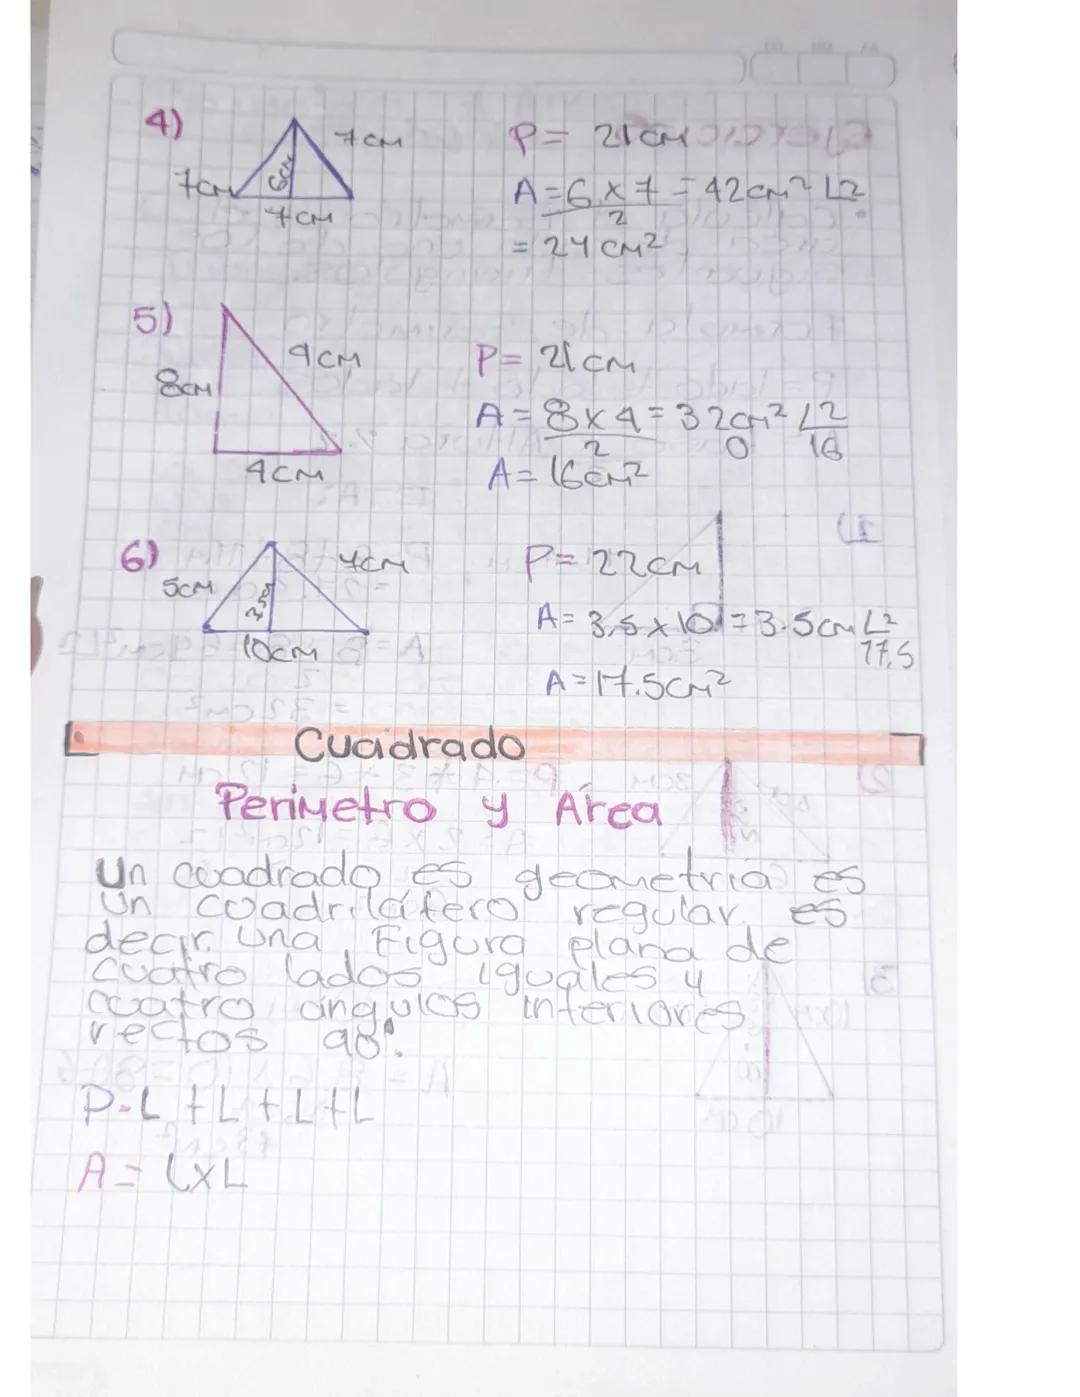 4)
7cm
7cm
6cm
7cm
P= 21cm
A=6 x 7 = 42cm² 2
2
= 24cm²
5)
9cm
8cm
4cm
P= 21cm
A= 8x4 = 32cm² 2
2 0 16
A= 16cm²
6)
5cm
7cm
3,5cm
10cm
P= 22cm
A= 3,5 x 10 = 3.5cm 2
17,5
A=17.5cm²
Cuadrado
Perimetro y Área
Un cuadrado es geometria es
un cuadrilátero regular, es
decir una Figura plana de
cuatro lados iguales y
cuatro ángulos interiores
rectos 90°.
P=L+L+L+L
A= LxL